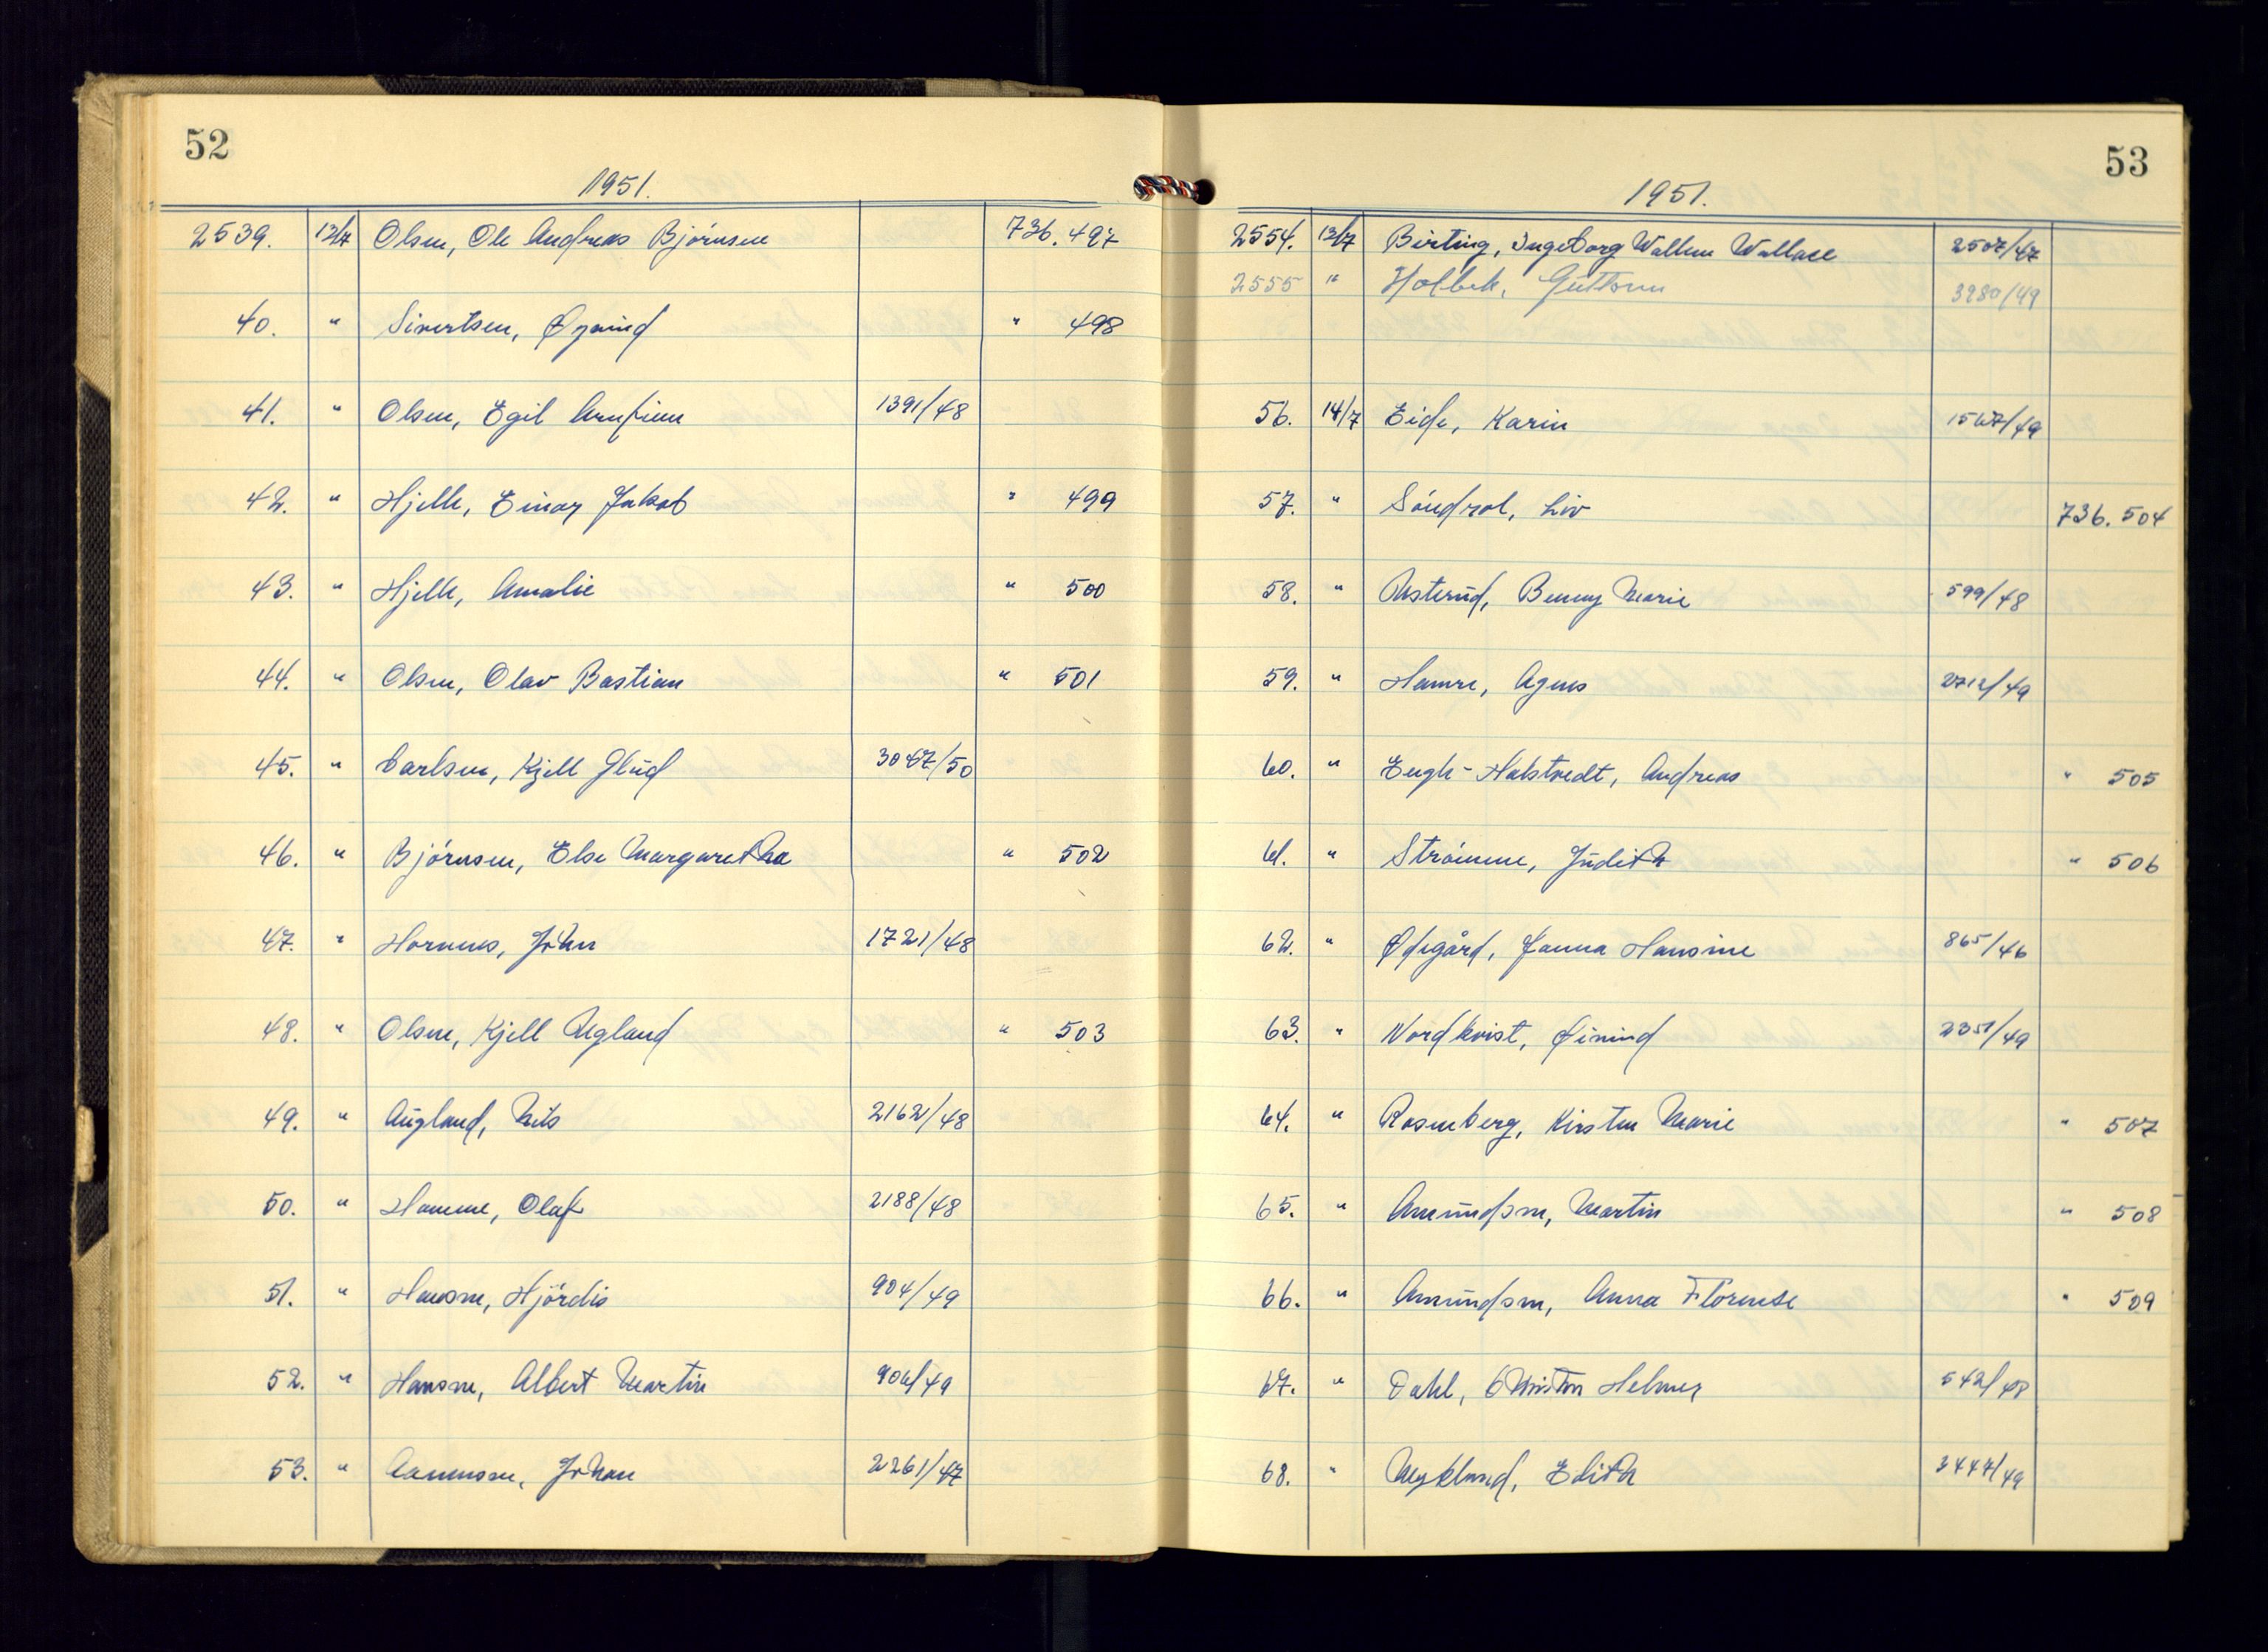 52
1951.
2539. 13/7 Olsen, Ole Andreas Bjørnsen 736.497
40. " Sivertsen, Øyvind " 498
41. " Olsen, Egil Arnfinn 1391/48
42. " Hjelle, Einar Jakob " 499
43. " Hjelle, Amalie " 500
44. " Olsen, Olav Bastian " 501
45. " Carlsen, Kjell Glud 3047/50
46. " Bjørnsen, Else Margaretha " 502
47. " Hornnes, John 1721/48
48. " Olsen, Kjell Ugland " 503
49. " Augland, Nils 2162/48
50. " Hamme, Olaf 2188/48
51. " Hansen, Hjørdis 904/49
52. " Hansen, Albert Martin 906/49
53. " Aanensen, Johan 2261/47
53
1951.
2554. 13/7 Birting, Ingeborg Wallem Wallace 2507/47
2555 " Holbek, Guttorm 3980/49
56. 14/7 Eide, Karin 1567/49
57. " Søndrol, Liv 736.504
58. " Austerud, Benny Marie 599/48
59. " Hamre, Agnes 2712/49
60. " Engh-Halstvedt, Andreas " 505
61. " Strømme, Judith " 506
62. " Ødegård, Janna Hansine 865/46
63. " Nordkvist, Øivind 2351/49
64. " Rosenberg, Kirsten Marie " 507
65. " Amundsen, Martin " 508
66. " Amundsen, Anna Florense " 509
67. " Dahl, Christen Helmer 542/48
68. " Myklund, Edith 3447/49